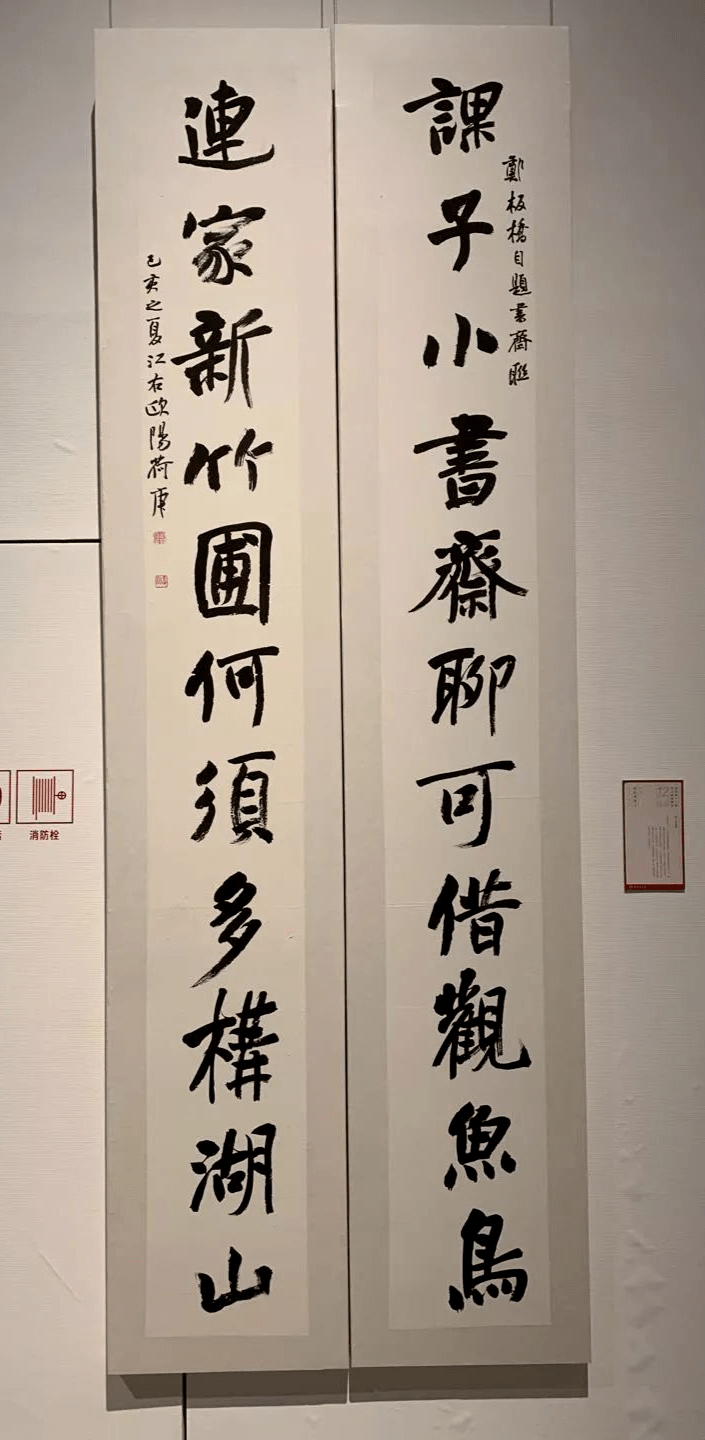 課子小書齋聊可借觀魚鳥
鄭板橋自題書齋聯
連家新竹圃何須多構湖山
己亥之夏江右歐陽荷庚
消防栓